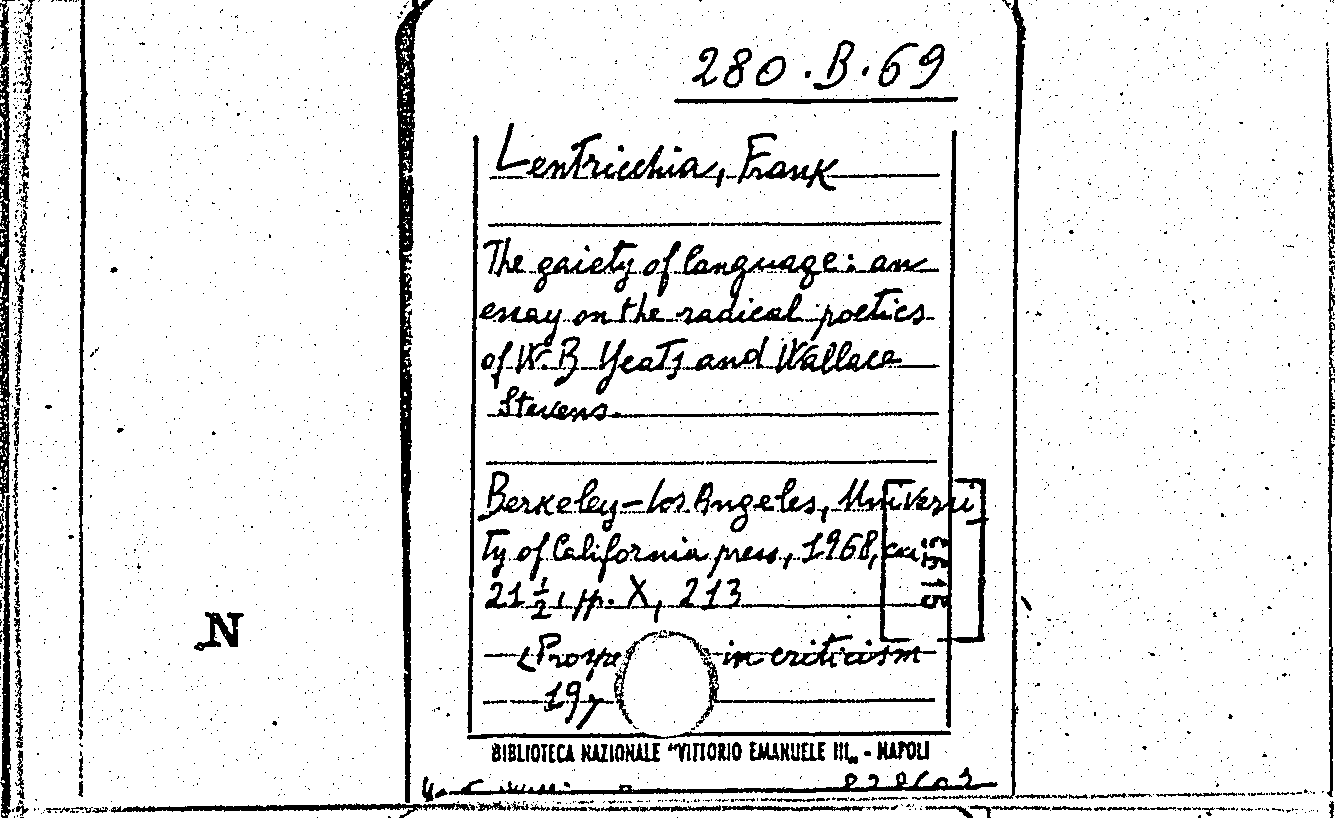 280.B.69
Lentricchia, Frank
The gaiety of language: an
essay on the radical poetics
of W. B Yeats and Wallace
Stevens.
Berkeley-Los Angeles, Universi
ty of California press, 1968,
21 1/2, pp. X, 213
in criticism
N
BIBLIOTECA NAZIONALE "VITTORIO EMANUELE III„ - NAPOLI